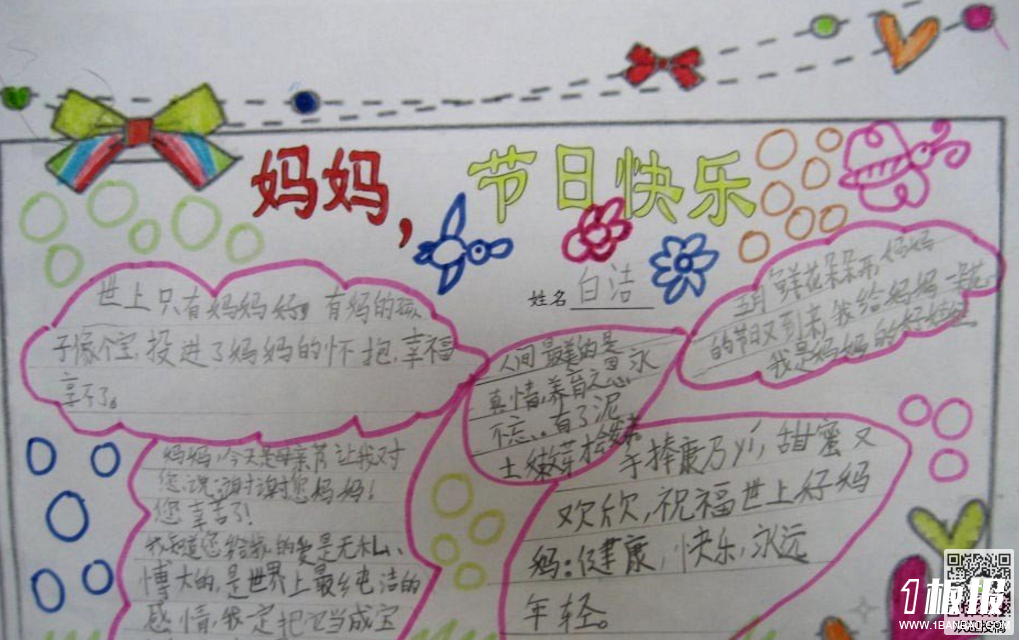 妈妈，节日快乐
姓名 白洁
世上只有妈妈好，有妈的孩
子像个宝，投进了妈妈的怀抱，幸福
享不了。
人间最美的是
真情，养育之恩永
不忘
有了泥
土嫩芽
五月鲜花朵朵开，妈妈
的节日又到来，我给妈妈一朵花，
我是妈妈的好娃娃
妈妈，今天是母亲节让我对
您说：谢谢您妈妈！
您辛苦了！
我知道您给我的爱是无私、
博大的，是世界上最纯洁的
感情，我一定把它当成宝
手捧康乃yí，甜蜜又
欢欣，祝福世上好妈
妈：健康，快乐，永远
年轻。
1板报
WWW.1BANBAO.COM
欢迎投稿